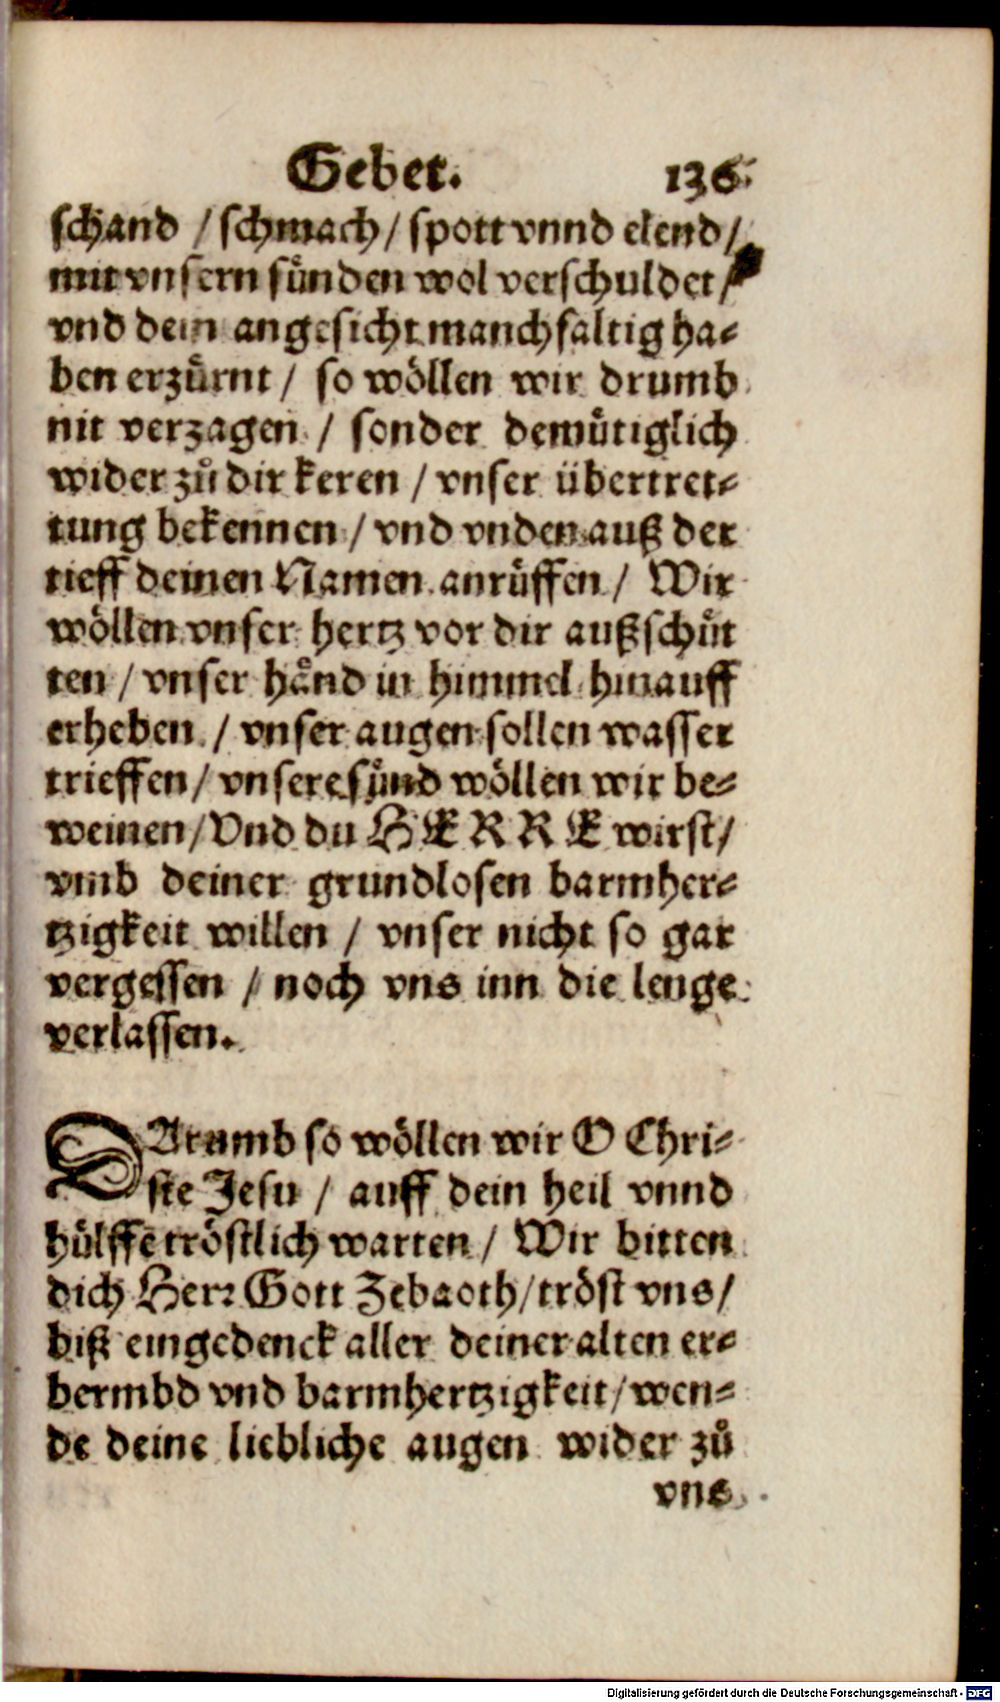 Gebet. 136.
schand / schmach / spott vnnd elend /
mit vnsern sünden wol verschuldet /
vnd dein angesicht manchfaltig ha⸗
ben erzürnt / so wöllen wir drumb
nit verzagen / sonder demütiglich
wider zů dir keren / vnser übertret⸗
tung bekennen / vnd vnden auß der
tieff deinen Namen anrüffen / Wir
wöllen vnser hertz vor dir außschüt
ten / vnser händ in himmel hinauff
erheben / vnser augen sollen wasser
trieffen / vnsere sünd wöllen wir be⸗
weinen / Vnd du HERRE wirst /
vmb deiner grundlosen barmher⸗
tzigkeit willen / vnser nicht so gar
vergessen / noch vns inn die lenge
verlassen.
DArumb so wöllen wir O Chri⸗
ste Jesu / auff dein heil vnnd
hülffe tröstlich warten / Wir bitten
dich Herr Gott Zebaoth / tröst vns /
biß eingedenck aller deiner alten er⸗
bermbd vnd barmhertzigkeit / wen⸗
de deine liebliche augen wider zů
vns
Digitalisierung gefördert durch die Deutsche Forschungsgemeinschaft - DFG